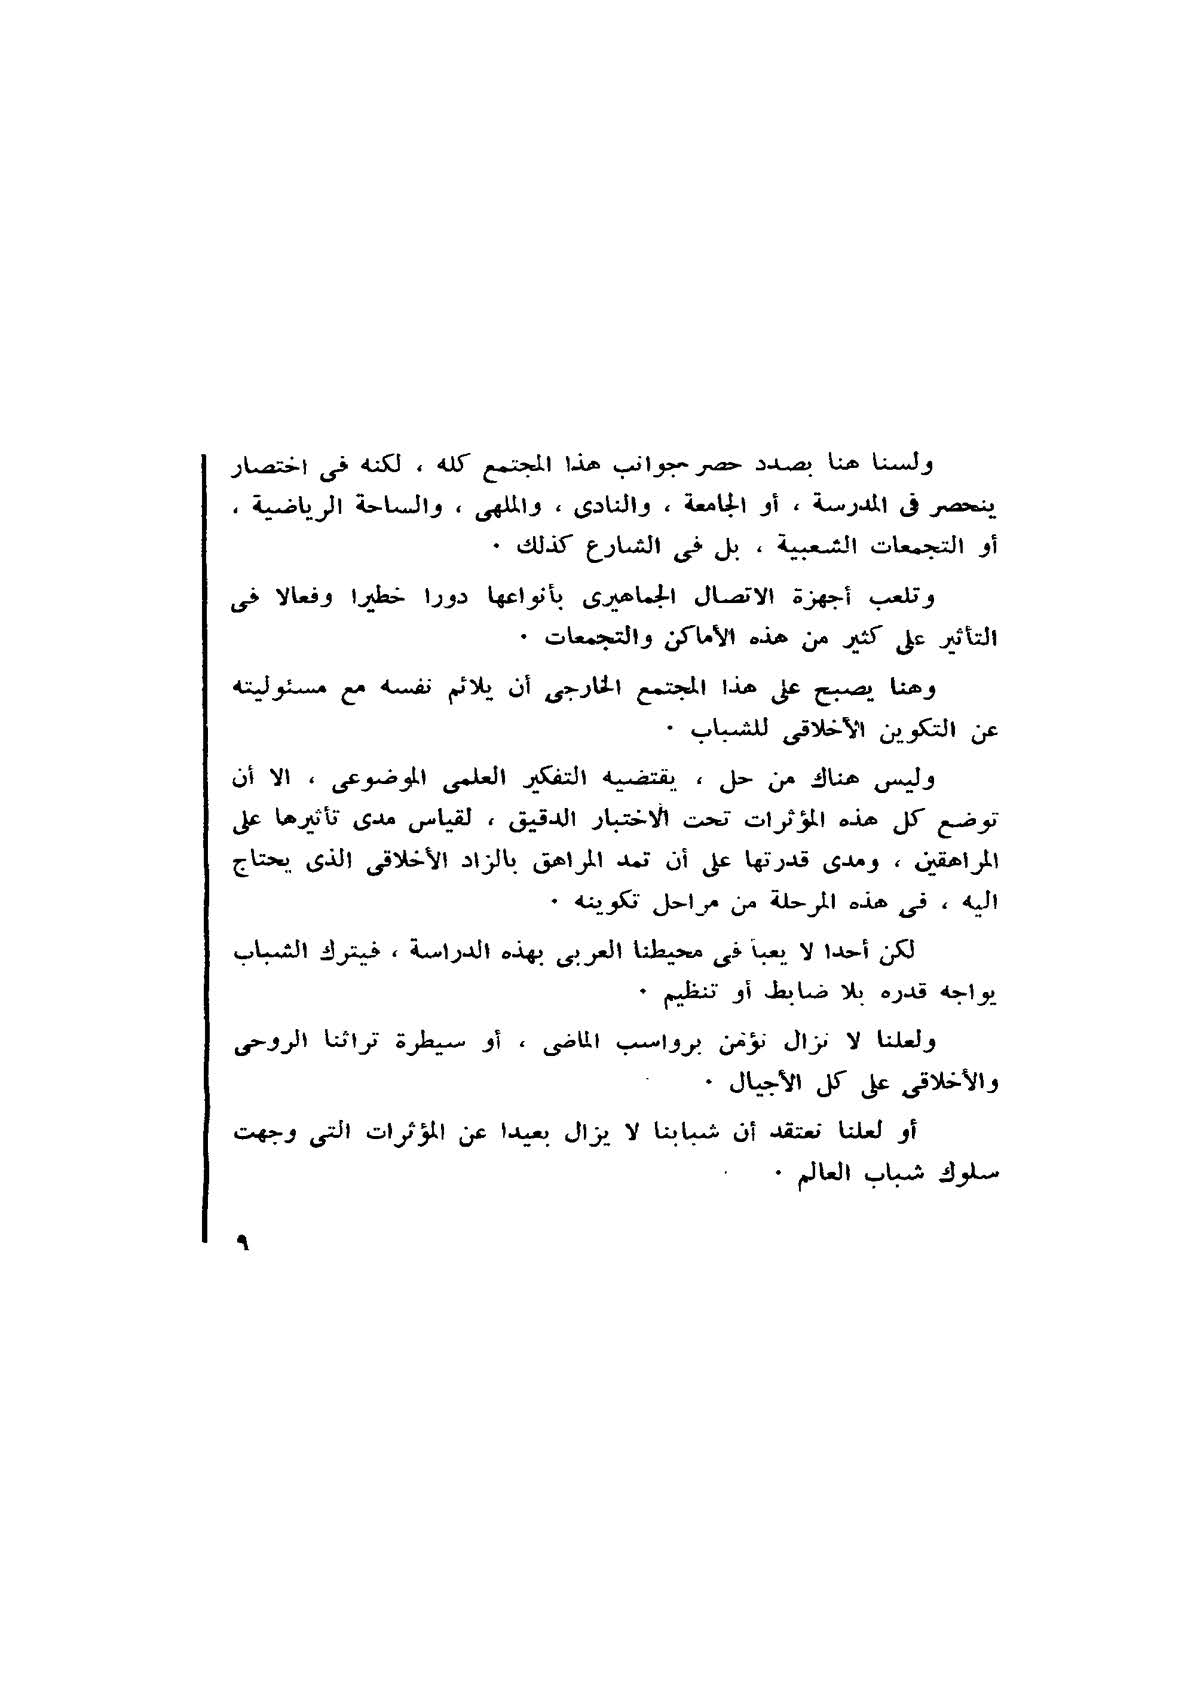 ولسنا هنا بصدد حصر جوانب هذا المجتمع كله ، لكنه فى اختصار
ينحصر فى المدرسة ، أو الجامعة ، والنادى ، والملهى ، والساحة الرياضية ،
أو التجمعات الشعبية ، بل فى الشارع كذلك ٠
وتلعب أجهزة الاتصال الجماهيرى بأنواعها دورا خطيرا وفعالا فى
التأثير على كثير من هذه الأماكن والتجمعات ٠
وهنا يصبح على هذا المجتمع الخارجى أن يلائم نفسه مع مسئوليته
عن التكوين الأخلاقى للشباب ٠
وليس هناك من حل ، يقتضيه التفكير العلمى الموضوعى ، الا أن
توضع كل هذه المؤثرات تحت الاختبار الدقيق ، لقياس مدى تأثيرها على
المراهقين ، ومدى قدرتها على أن تمد المراهق بالزاد الأخلاقى الذى يحتاج
اليه ، فى هذه المرحلة من مراحل تكوينه ٠
لكن أحدا لا يعبأ فى محيطنا العربى بهذه الدراسة ، فيترك الشباب
يواجه قدره بلا ضابط أو تنظيم ٠
ولعلنا لا نزال نؤمن برواسب الماضى ، أو سيطرة تراثنا الروحى
والأخلاقى على كل الأجيال ٠
أو لعلنا نعتقد أن شبابنا لا يزال بعيدا عن المؤثرات التى وجهت
سلوك شباب العالم ٠
٩